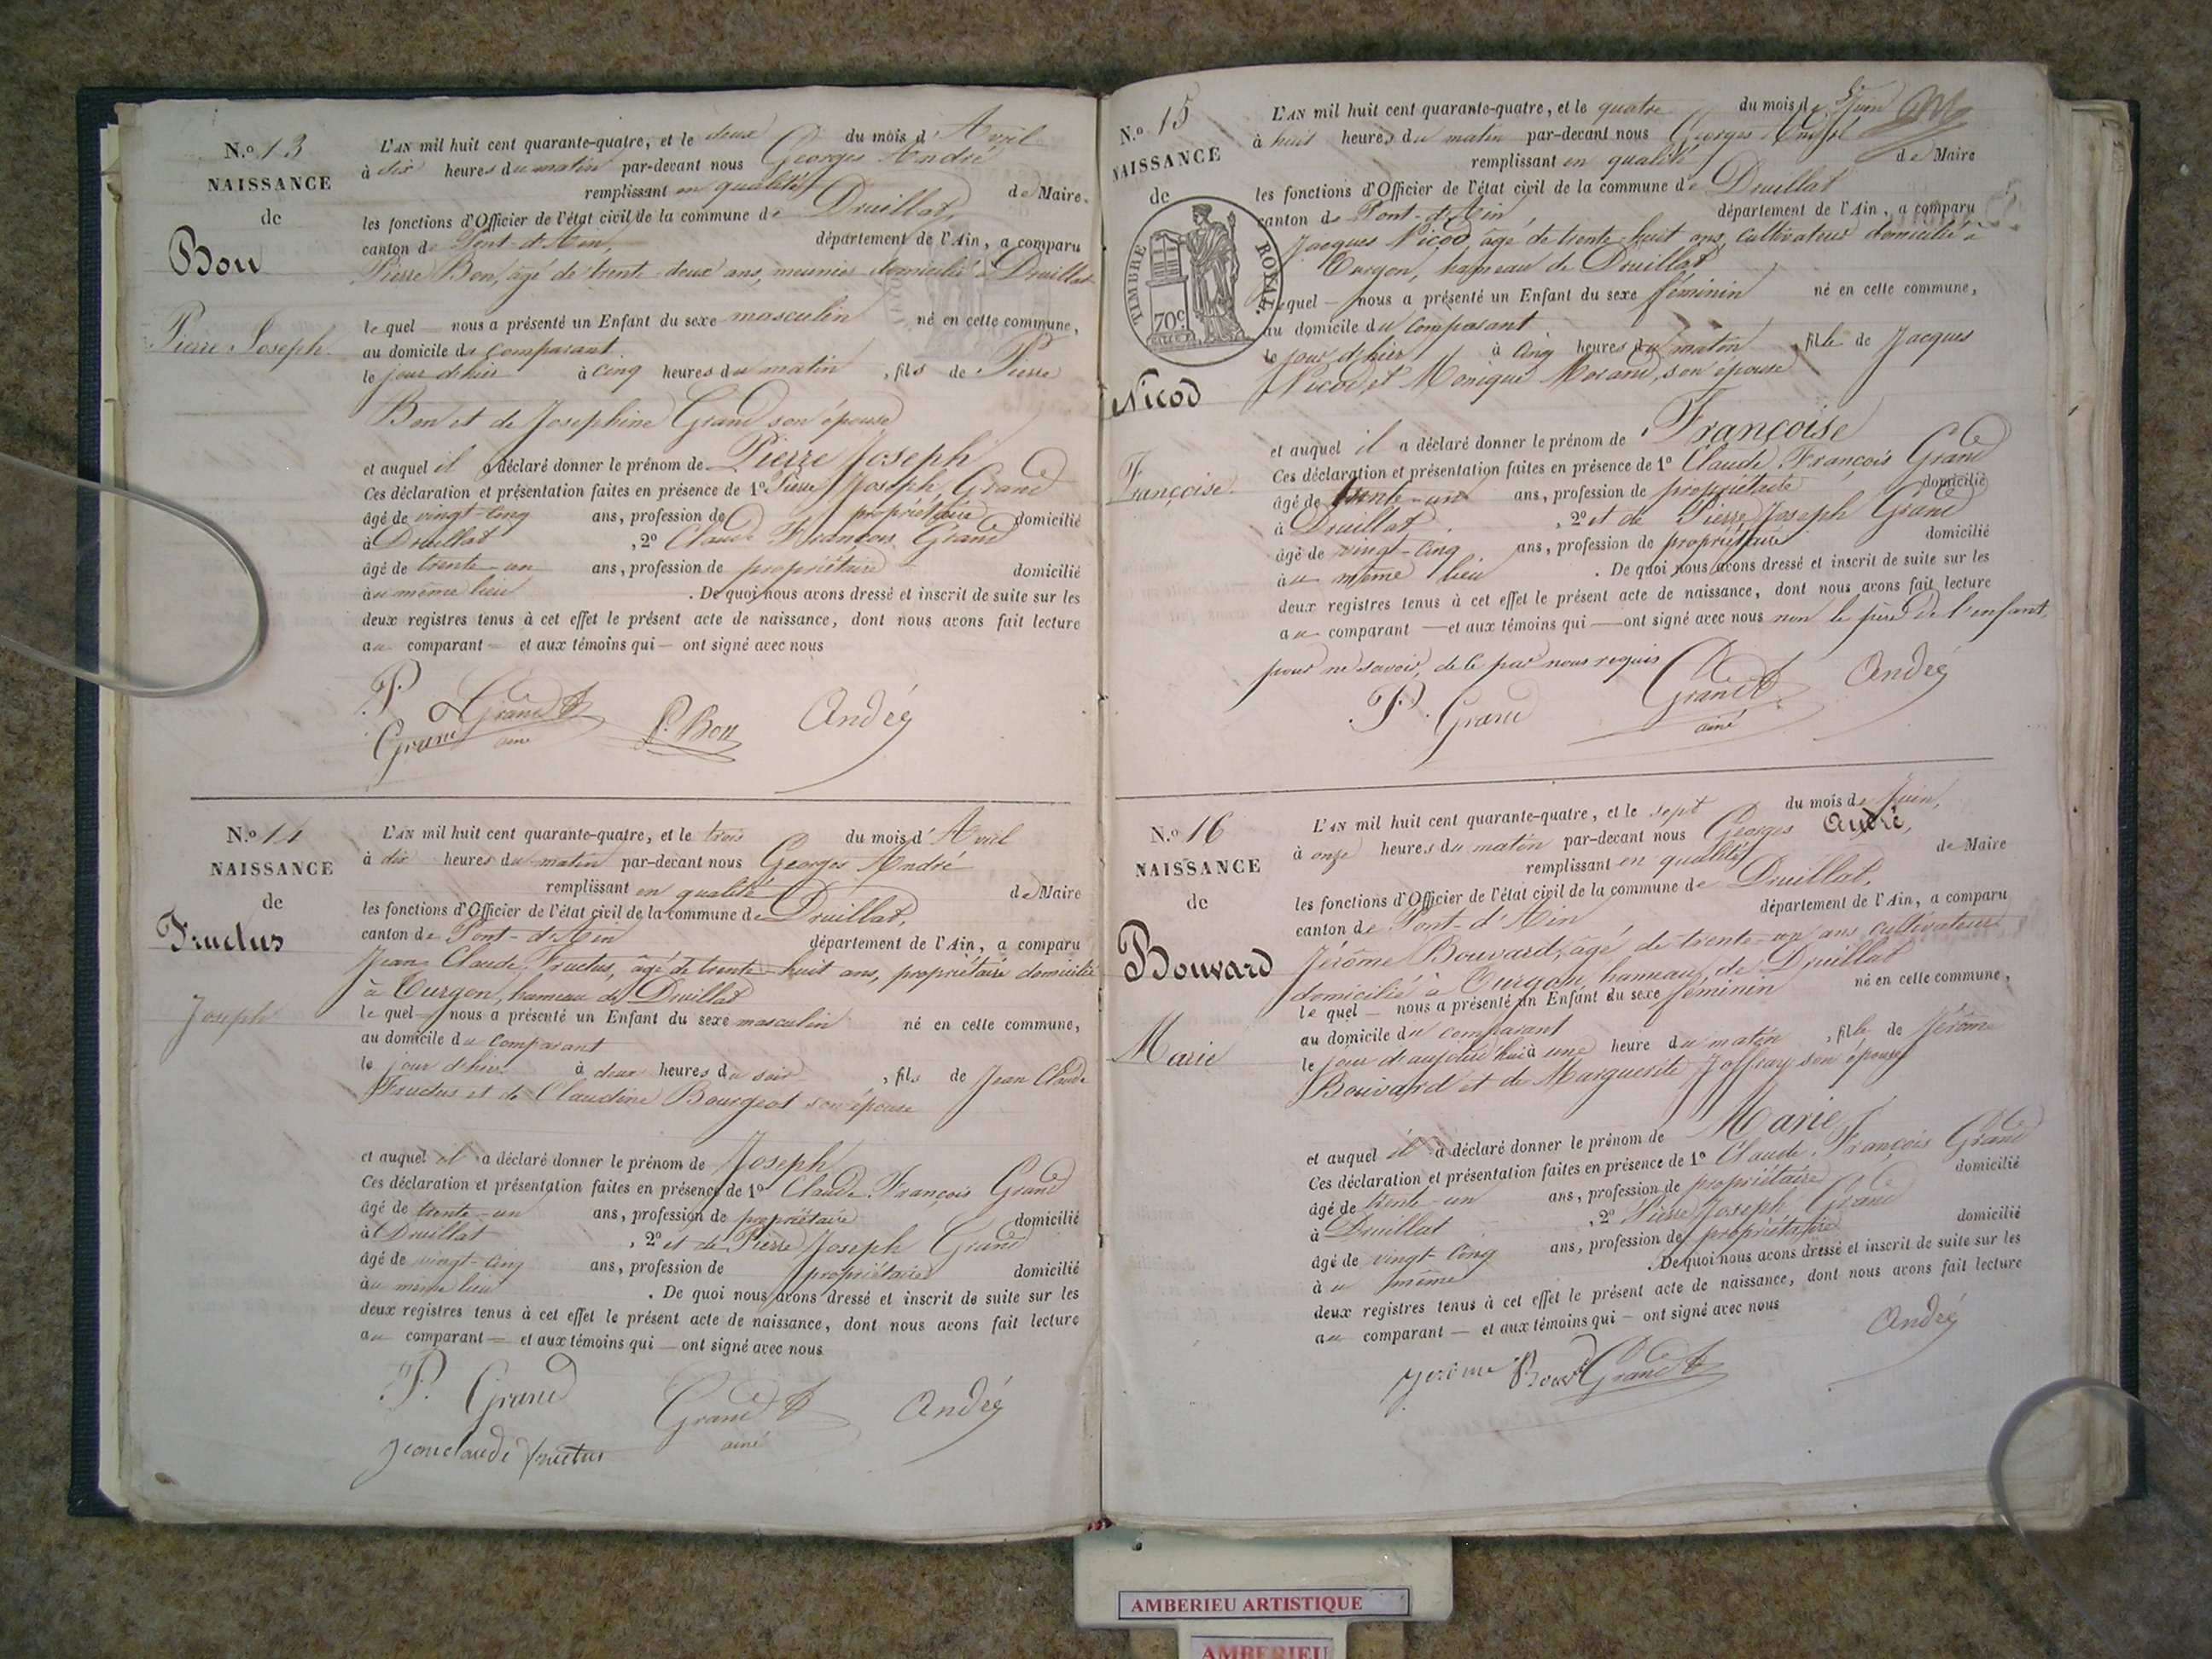 N.o 13
NAISSANCE
de
Bon
Pierre Joseph.
L'AN mil huit cent quarante-quatre, et le deux du mois d'Avril
à dix heures du matin par-devant nous Georges André
remplissant en qualité de Maire.
les fonctions d'Officier de l'état civil de la commune de Druillat,
canton de Pont-d'Ain, département de l'Ain, a comparu
Pierre Bon, âgé de trente-deux ans, meunier domicilié à Druillat
le quel nous a présenté un Enfant du sexe masculin né en cette commune,
au domicile du comparant
le jour d'hier à cinq heures du matin, fils de Pierre
Bon et de Josephine Grand son épouse
et auquel il a déclaré donner le prénom de Pierre Joseph
Ces déclaration et présentation faites en présence de 1º Pierre Joseph Grand
âgé de vingt-cinq ans, profession de propriétaire domicilié
à Druillat, 2º Claude François Grand
âgé de trente-un ans, profession de propriétaire domicilié
au même lieu. De quoi nous avons dressé et inscrit de suite sur les
deux registres tenus à cet effet le présent acte de naissance, dont nous avons fait lecture
au comparant — et aux témoins qui — ont signé avec nous
P. Grand Grand aîné P. Bon André
N.o 14
NAISSANCE
de
Fructus
Joseph
L'AN mil huit cent quarante-quatre, et le trois du mois d'Avril
à dix heures du matin par-devant nous Georges André
remplissant en qualité de Maire
les fonctions d'Officier de l'état civil de la commune de Druillat,
canton de Pont-d'Ain département de l'Ain, a comparu
Jean Claude Fructus, âgé de trente-huit ans, propriétaire domicilié
à Turgon, hameau de Druillat
le quel nous a présenté un Enfant du sexe masculin né en cette commune,
au domicile du comparant
le jour d'hier à deux heures du soir, fils de Jean Claude
Fructus et de Claudine Bourgeot son épouse
et auquel il a déclaré donner le prénom de Joseph
Ces déclaration et présentation faites en présence de 1º Claude François Grand
âgé de trente-un ans, profession de propriétaire domicilié
à Druillat, 2º et de Pierre Joseph Grand
âgé de vingt-cinq ans, profession de propriétaire domicilié
au même lieu. De quoi nous avons dressé et inscrit de suite sur les
deux registres tenus à cet effet le présent acte de naissance, dont nous avons fait lecture
au comparant — et aux témoins qui — ont signé avec nous
P. Grand Grand aîné André
Jean claude fructus
N.o 15
NAISSANCE
de
TIMBRE ROYAL.
70c
Nicod
Françoise.
L'AN mil huit cent quarante-quatre, et le quatre du mois de Juin
à huit heures du matin par-devant nous Georges André
remplissant en qualité de Maire
les fonctions d'Officier de l'état civil de la commune de Druillat
canton de Pont-d'Ain département de l'Ain, a comparu
Jacques Nicod, âgé de trente-huit ans, cultivateur domicilié à
Turgon, hameau de Druillat
lequel — nous a présenté un Enfant du sexe féminin né en cette commune,
au domicile du comparant
le jour d'hier à cinq heures du matin, fille de Jacques
Nicod et Monique Morand, son épouse
et auquel il a déclaré donner le prénom de Françoise
Ces déclaration et présentation faites en présence de 1º Claude François Grand
âgé de trente-un ans, profession de propriétaire domicilié
à Druillat, 2º et de Pierre Joseph Grand
âgé de vingt-cinq ans, profession de propriétaire domicilié
au même lieu. De quoi nous avons dressé et inscrit de suite sur les
deux registres tenus à cet effet le présent acte de naissance, dont nous avons fait lecture
au comparant — et aux témoins qui — ont signé avec nous non le père de l'enfant,
pour ne savoir, de ce par nous requis
P. Grand Grand aîné André
N.o 16
NAISSANCE
de
Bouvard
Marie
L'AN mil huit cent quarante-quatre, et le sept du mois de Juin,
à onze heures du matin par-devant nous Georges André,
remplissant en qualité de Maire
les fonctions d'Officier de l'état civil de la commune de Druillat,
canton de Pont-d'Ain département de l'Ain, a comparu
Jérôme Bouvard, âgé de trente-un ans cultivateur
domicilié à Turgon, hameau de Druillat
le quel — nous a présenté un Enfant du sexe féminin né en cette commune,
au domicile du comparant
le jour d'aujourd'hui à une heure du matin, fille de Jérôme
Bouvard et de Marguerite Joffray son épouse
et auquel il a déclaré donner le prénom de Marie
Ces déclaration et présentation faites en présence de 1º Claude François Grand
âgé de trente-un ans, profession de propriétaire domicilié
à Druillat, 2º Pierre Joseph Grand
âgé de vingt-cinq ans, profession de propriétaire domicilié
au même. De quoi nous avons dressé et inscrit de suite sur les
deux registres tenus à cet effet le présent acte de naissance, dont nous avons fait lecture
au comparant — et aux témoins qui — ont signé avec nous
Jerome Grand André
AMBERIEU ARTISTIQUE
AMBERIEU